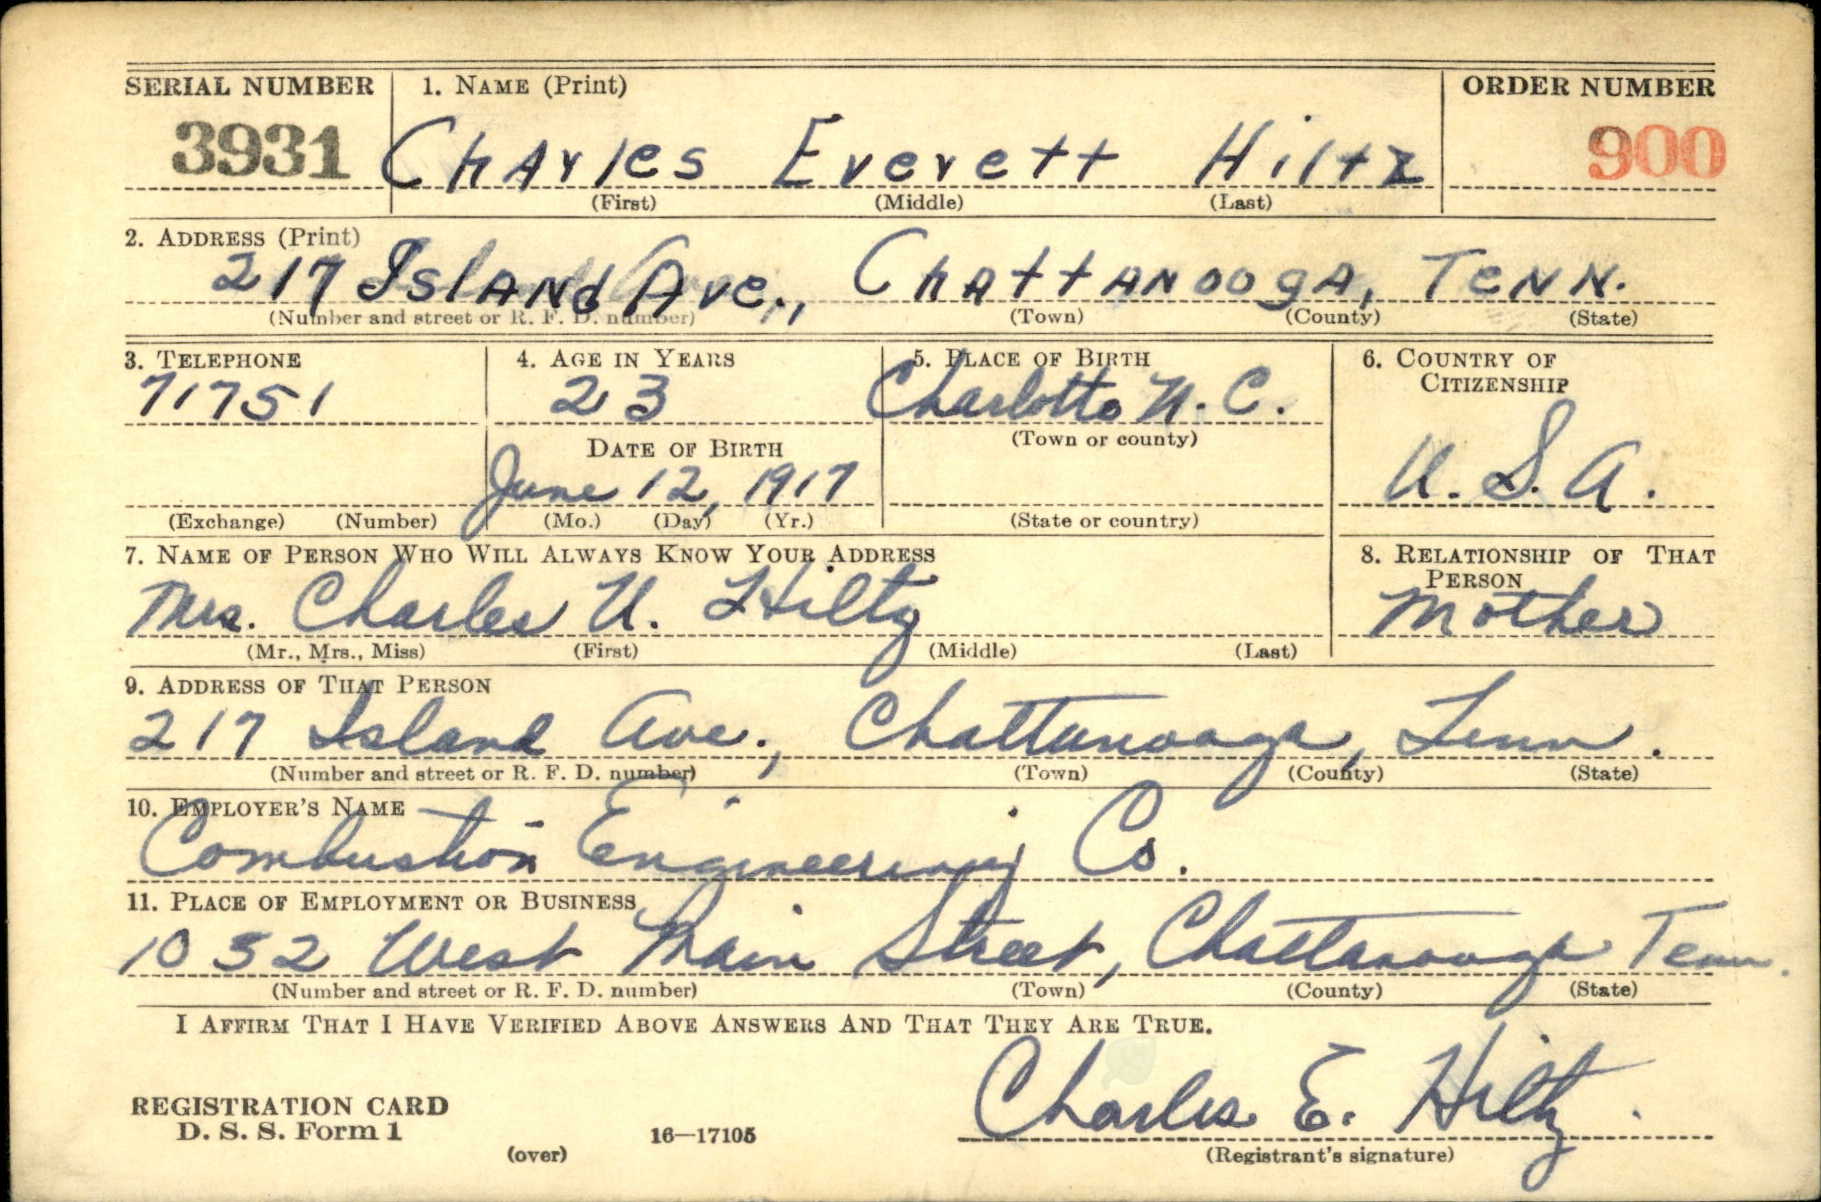 SERIAL NUMBER 1. NAME (Print) ORDER NUMBER
3931 Charles Everett Hiltz 900
(First) (Middle) (Last)
2. ADDRESS (Print)
217 Island Ave., Chattanooga, Tenn.
(Number and street or R. F. D. number) (Town) (County) (State)
3. TELEPHONE 4. AGE IN YEARS 5. PLACE OF BIRTH 6. COUNTRY OF CITIZENSHIP
71751 23 Charlotte N. C.
DATE OF BIRTH (Town or county)
June 12, 1917 U. S. A.
(Exchange) (Number) (Mo.) (Day) (Yr.) (State or country)
7. NAME OF PERSON WHO WILL ALWAYS KNOW YOUR ADDRESS 8. RELATIONSHIP OF THAT PERSON
Mrs. Charles U. Hiltz Mother
(Mr., Mrs., Miss) (First) (Middle) (Last)
9. ADDRESS OF THAT PERSON
217 Island Ave., Chattanooga, Tenn.
(Number and street or R. F. D. number) (Town) (County) (State)
10. EMPLOYER'S NAME
Combustion Engineering Co.
11. PLACE OF EMPLOYMENT OR BUSINESS
1032 West Main Street, Chattanooga Tenn.
(Number and street or R. F. D. number) (Town) (County) (State)
I AFFIRM THAT I HAVE VERIFIED ABOVE ANSWERS AND THAT THEY ARE TRUE.
REGISTRATION CARD
D. S. S. Form 1 Charles E. Hiltz
(over) 16—17105 (Registrant's signature)